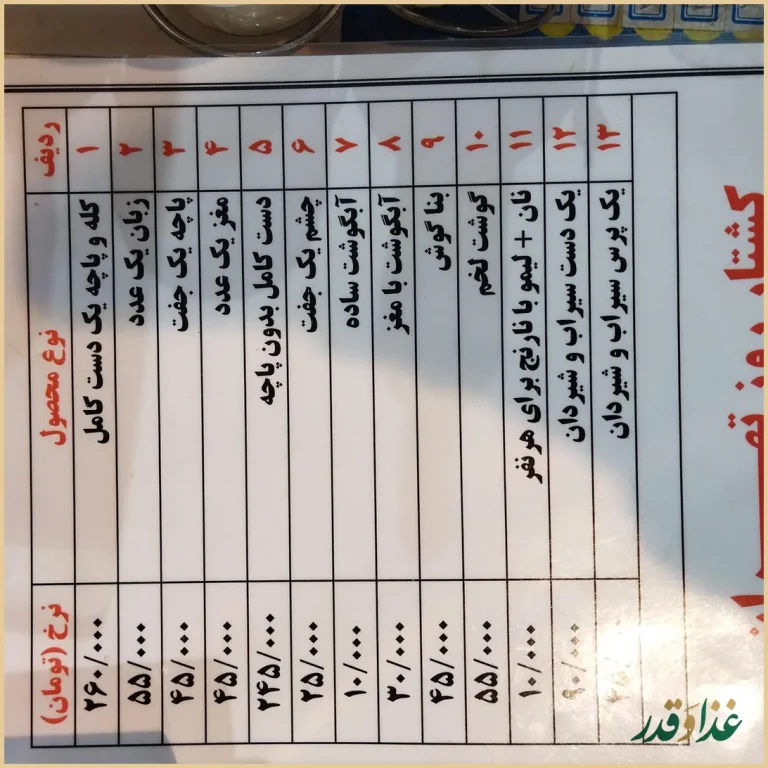 ردیف نوع محصول نرخ (تومان)
۱ کله و پاچه یک دست کامل ۲۶۰/۰۰۰
۲ زبان یک عدد ۵۵/۰۰۰
۳ پاچه یک جفت ۴۵/۰۰۰
۴ مغز یک عدد ۴۵/۰۰۰
۵ دست کامل بدون پاچه ۲۴۵/۰۰۰
۶ چشم یک جفت ۲۵/۰۰۰
۷ آبگوشت ساده ۱۰/۰۰۰
۸ آبگوشت با مغز ۳۰/۰۰۰
۹ بنا گوش ۴۵/۰۰۰
۱۰ گوشت لخم ۵۵/۰۰۰
۱۱ نان + لیمو با نارنج برای هر نفر ۱۰/۰۰۰
۱۲ یک دست سیراب و شیردان ۹۰/۰۰۰
۱۳ یک پرس سیراب و شیردان
کشتار روز
غذا و قدر